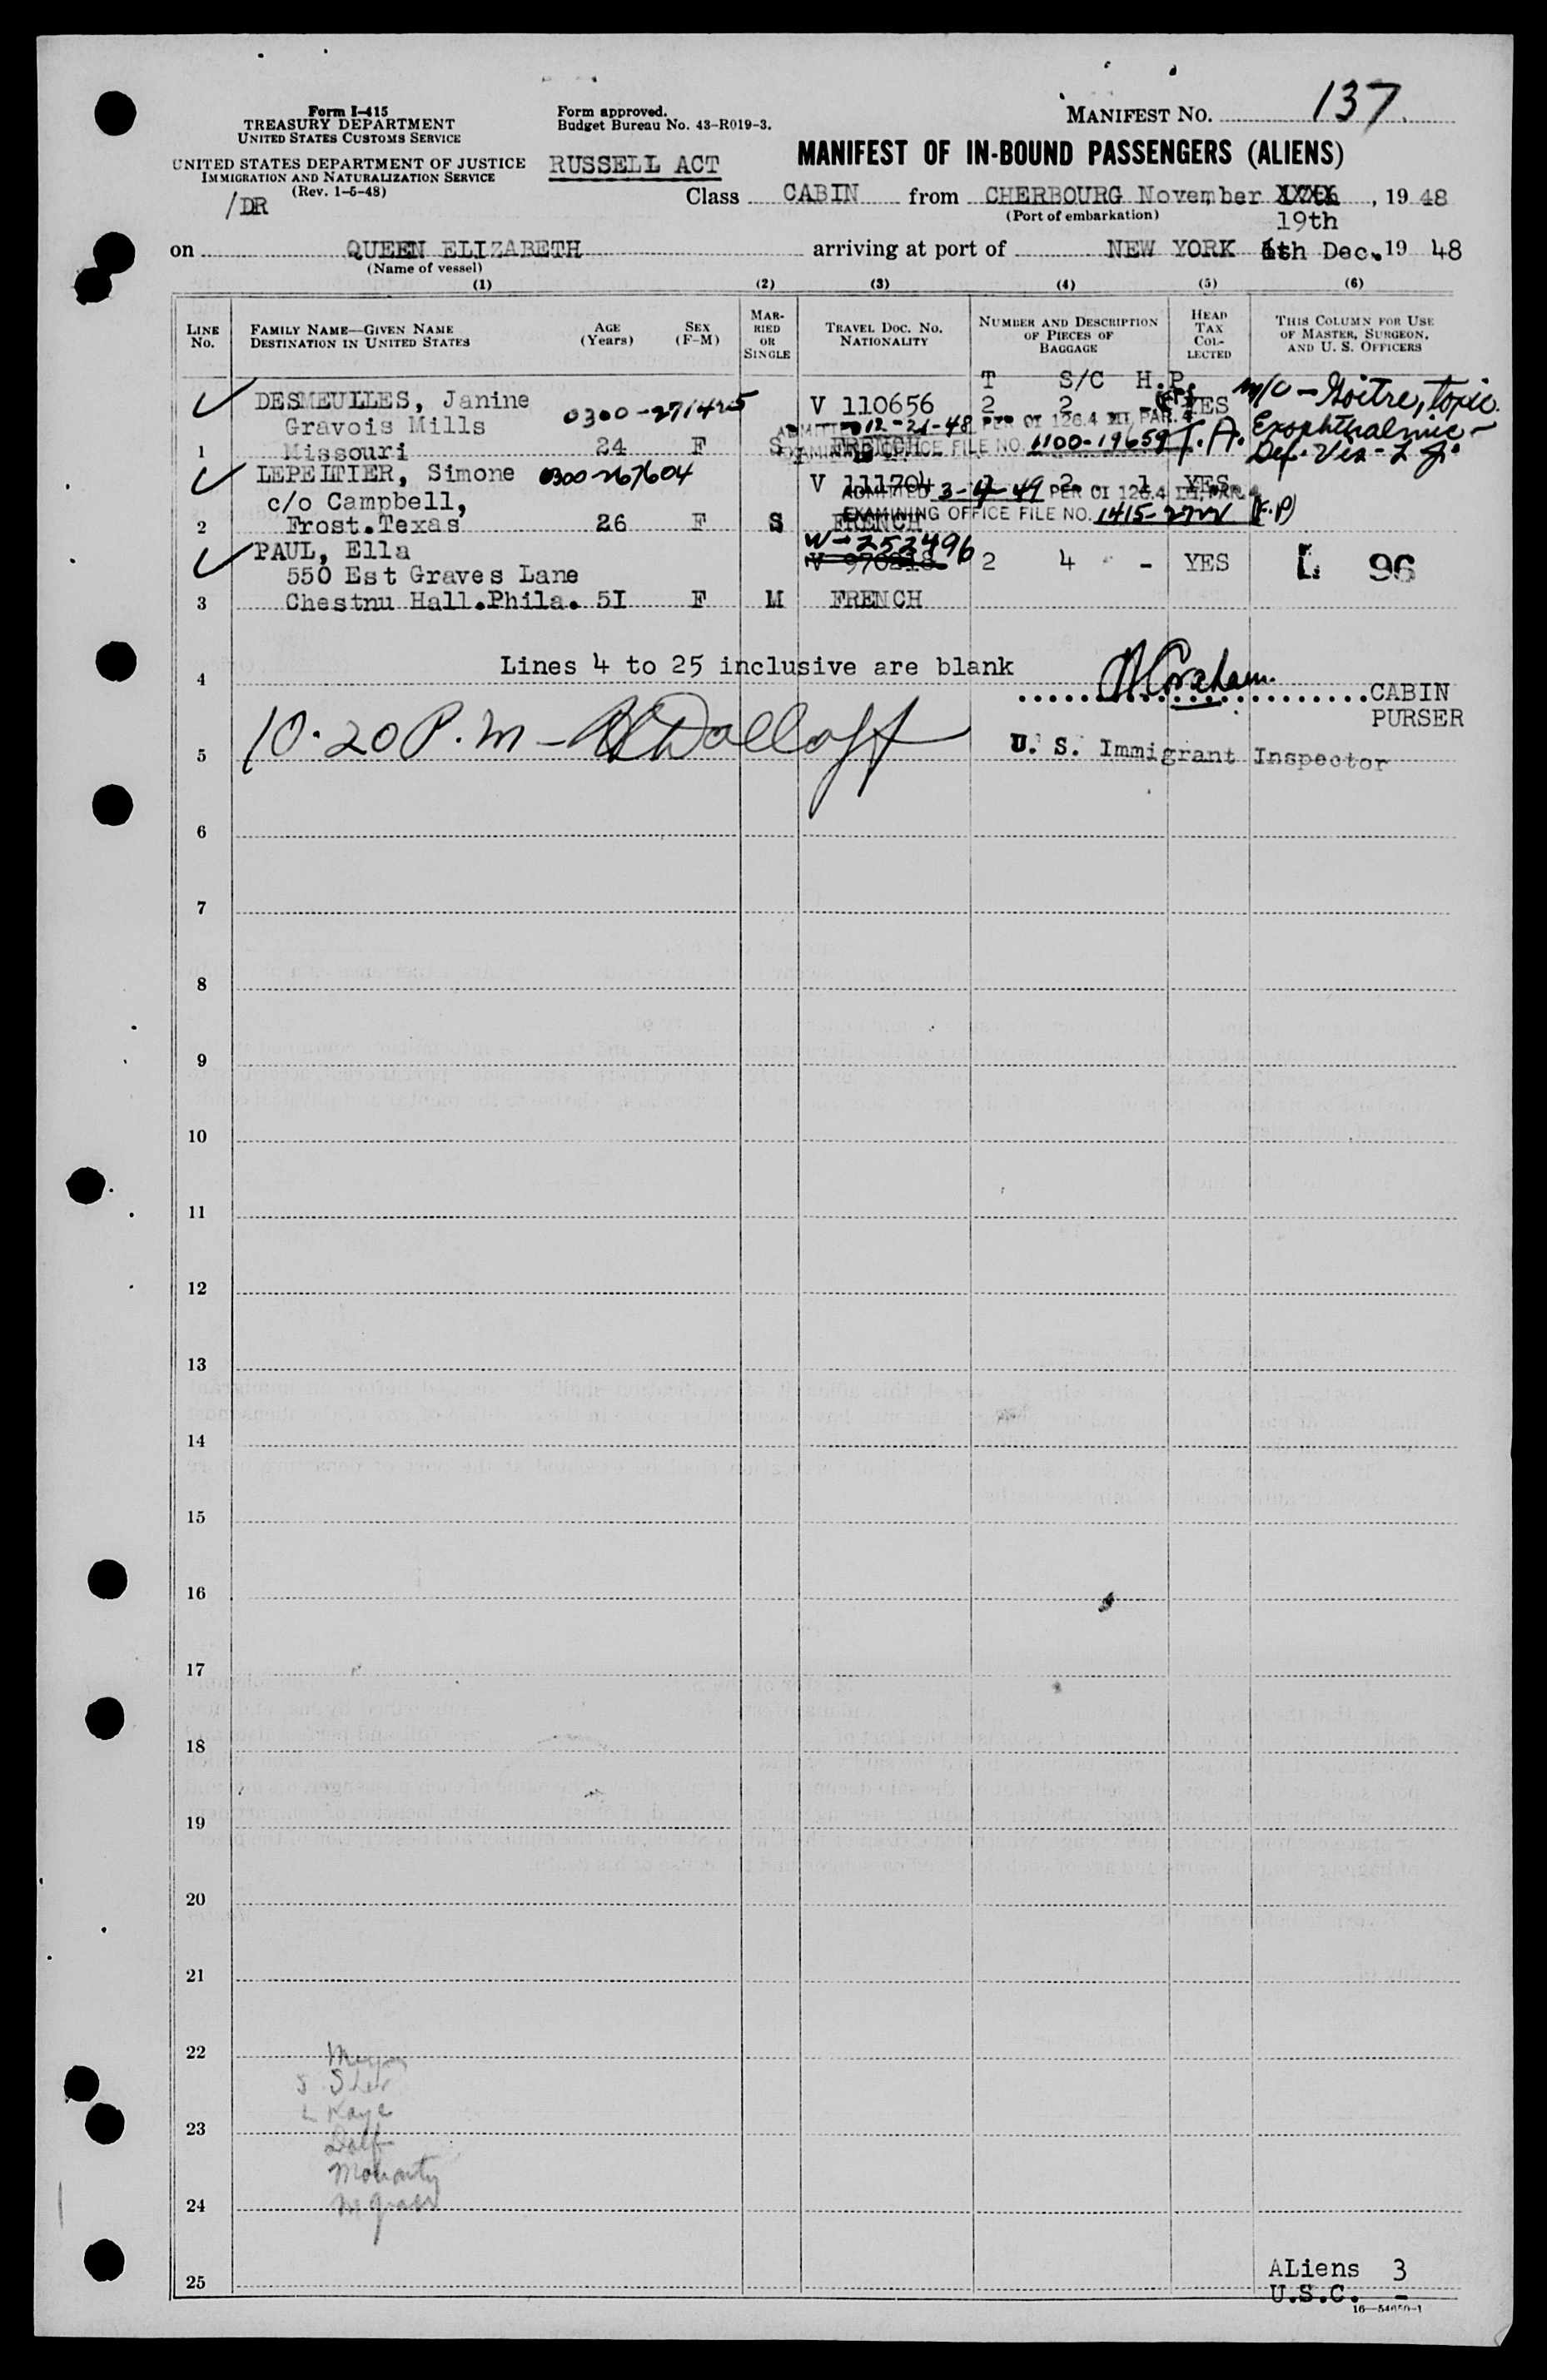 Form I-415
TREASURY DEPARTMENT
UNITED STATES CUSTOMS SERVICE
UNITED STATES DEPARTMENT OF JUSTICE
IMMIGRATION AND NATURALIZATION SERVICE
(Rev. 1-5-48)
/DR
Form approved.
Budget Bureau No. 43-R019-3.
RUSSELL ACT
MANIFEST NO. 137
MANIFEST OF IN-BOUND PASSENGERS (ALIENS)
Class CABIN from CHERBOURG November , 19 48
(Port of embarkation) 19th
on QUEEN ELIZABETH arriving at port of NEW YORK Dec. 19 48
(Name of vessel)
(1) (2) (3) (4) (5) (6)
LINE No. FAMILY NAME—GIVEN NAME DESTINATION IN UNITED STATES AGE (Years) SEX (F-M) MARRIED OR SINGLE TRAVEL DOC. NO. NATIONALITY NUMBER AND DESCRIPTION OF PIECES OF BAGGAGE HEAD TAX COLLECTED THIS COLUMN FOR USE OF MASTER, SURGEON, AND U. S. OFFICERS
T S/C H.P.
DESMEULLES, Janine 0300-271425 V 110656 2 2 - YES M/C - Goitre, toxic
Gravois Mills ADMITTED 12-21-48 PER OI 126.4 III, PAR. 4 Exophthalmic -
1 Missouri 24 F S FRENCH EXAMINING OFFICE FILE NO. 1100-19659 T.A. Def. Vis-
LEPELTIER, Simone 0300-267604 V 111704 1 2 1 YES
c/o Campbell, ADMITTED 3-4-49 PER OI 126.4 III, PAR. 4
2 Frost.Texas 26 F S FRENCH EXAMINING OFFICE FILE NO. 1415-2722 (F.P)
PAUL, Ella W-252496
V 970218 2 4 - YES L 96
550 Est Graves Lane
3 Chestnu Hall.Phila. 5I F M FRENCH
4 Lines 4 to 25 inclusive are blank
CABIN
PURSER
5 10.20 P.m -
U. S. Immigrant Inspector
6
7
8
9
10
11
12
13
14
15
16
17
18
19
20
21
22
L Kaye
23
Moriarty
24
25
ALiens 3
U.S.C. -